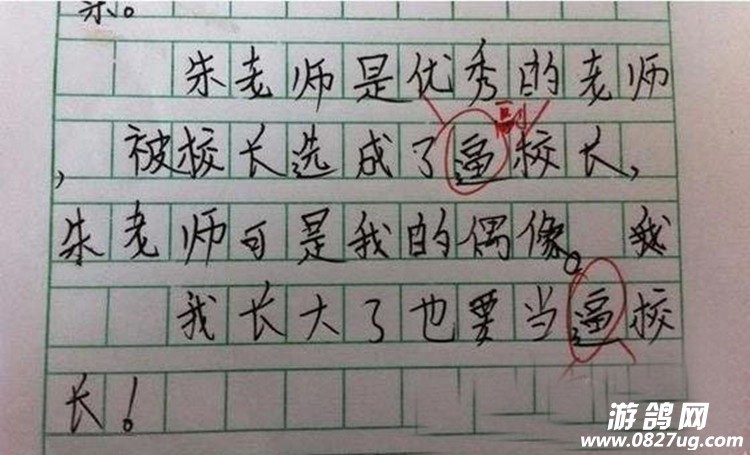 亲。
朱老师是优秀的老师
副
，被校长选成了逼校长，
朱老师可是我的偶像。我
我长大了也要当逼校
长！
游鸽网
www.0827ug.com